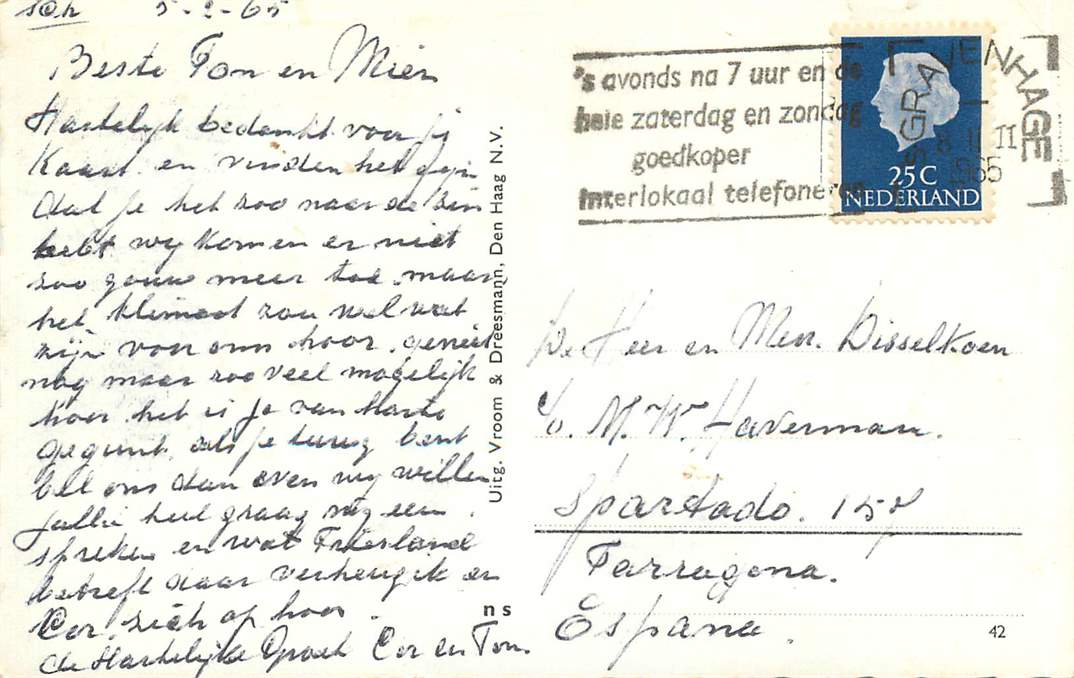 5-2-65
Beste Ton en Mien
Hartelijk bedankt voor je
Kaart en vinden het fijn
dat je het zoo naar de zin
hebt wij komen er niet
zoo gouw meer toe maar
het klimaat zou wel wat
zijn voor ons hoor. geniet
nog maar zoo veel mogelijk
hoor het is je van harte
gegunt als je terug bent
bel ons dan even wij willen
jullie heel graag nog een
spreken en wat Friesland
betreft daar verheugik en
Cor zich op hoor
de Hartelijke Groet Cor en Ton.
Uitg. Vroom & Dreesmann, Den Haag N.V.
ns
's avonds na 7 uur en de
hele zaterdag en zondag
goedkoper
interlokaal telefoneren
'S GRAVENHAGE
1965
25 C
NEDERLAND
De Heer en Mevr. Disselkoen
c/o. M. W. Haverman.
Spartado. 157
Tarragona.
Espana.
42